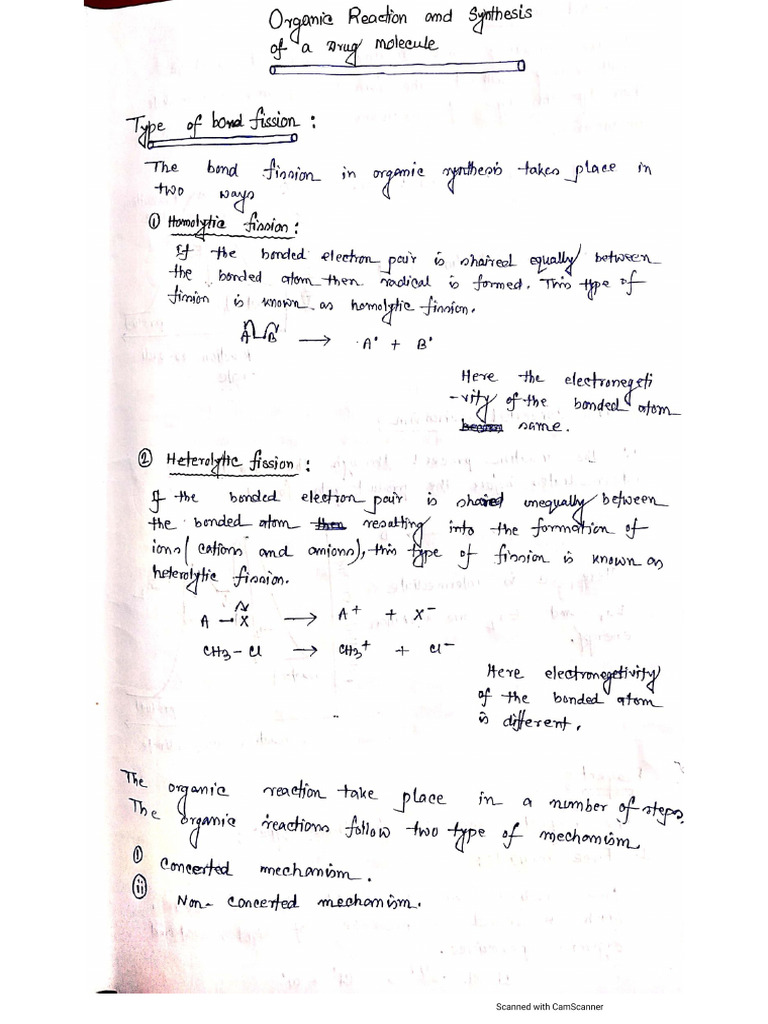 Organic Reaction and Synthesis
of a Drug Molecule
Type of bond fission :
The bond fission in organic synthesis takes place in
two ways
① Homolytic fission :
If the bonded electron pair is shaired equally between
the bonded atom then radical is formed. This type of
fission is known as homolytic fission.
A B → ·A• + B•
Here the electronegeti
-vity of the bonded atom
same.
② Heterolytic fission :
If the bonded electron pair is shared unequally between
the bonded atom then resalting into the formation of
ions( cations and anions), this type of fission is known as
heterolytic fission.
A – X → A+ + X–
CH3 – Cl → CH3+ + Cl–
Here electronegetivity
of the bonded atom
is different.
The organic reaction take place in a number of steps.
The organic reactions follow two type of mechanism
① Concerted mechanism.
ⓘⓘ Non- concerted mechanism.
Scanned with CamScanner